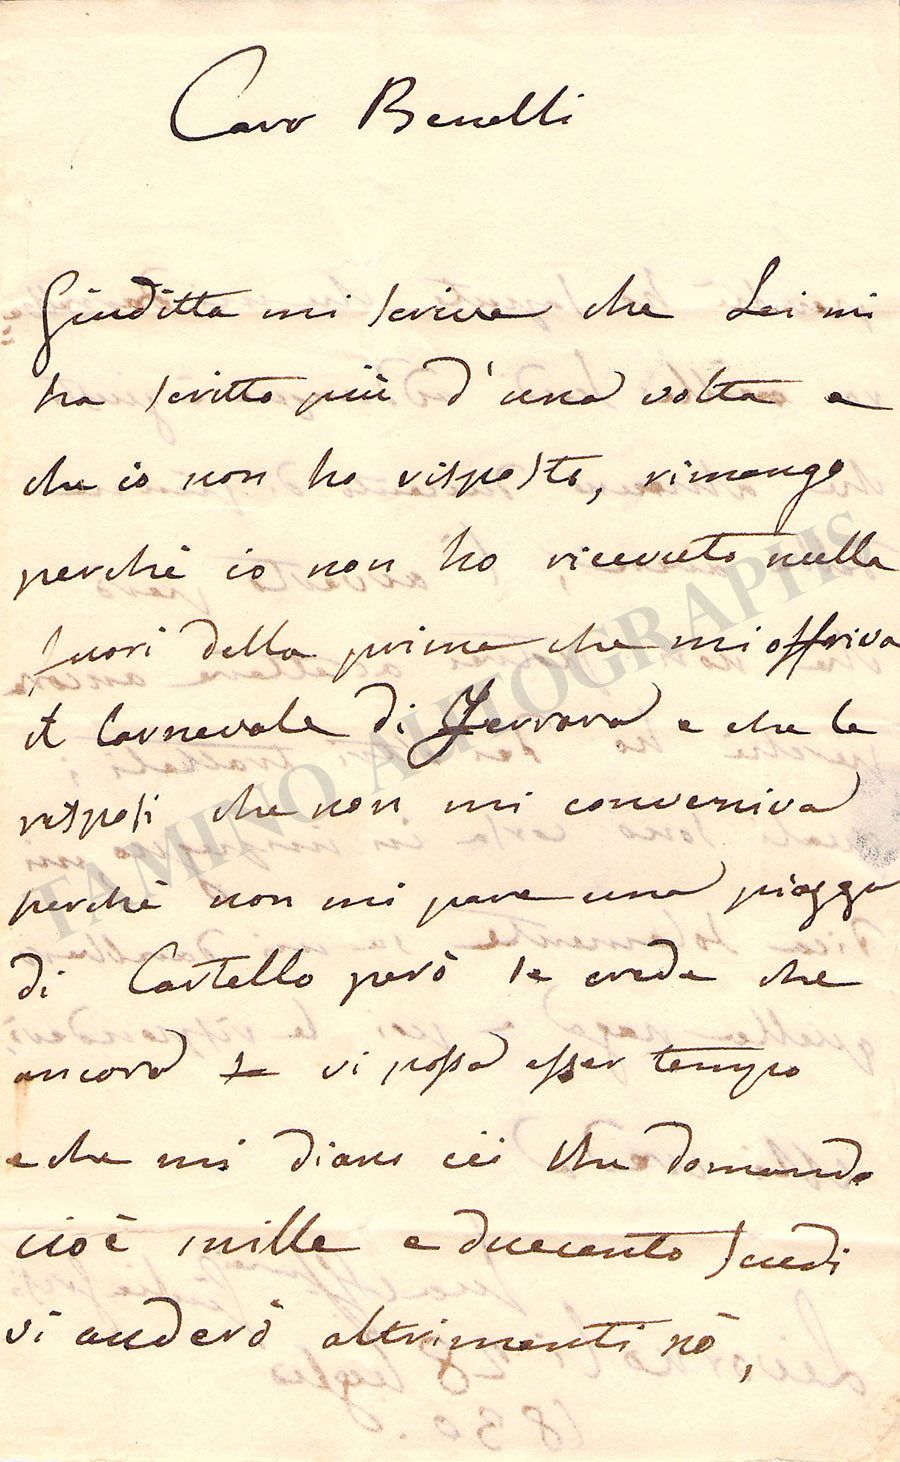 Caro Benelli
Giuditta mi scrive che Lei mi
ha scritto più d'una volta e
che io non ho risposto, rimango
perchè io non ho ricevuto nulla
fuori della prima che mi offriva
il Carnevale di Ferrara e che le
risposi che non mi conveniva
perchè non mi pare una piazza
di Cartello però se crede che
ancora vi possa esser tempo
e che mi diano ciò che domando
cioè mille e duecento scudi
vi anderò altrimenti nò,
TAMINO AUTOGRAPHS